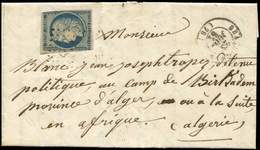 Monsieur
Blanc jean joseph tropez détenu
politique, au camp de Birkadem
province d'alger, ou à la Suite
en afrique. (algerie)